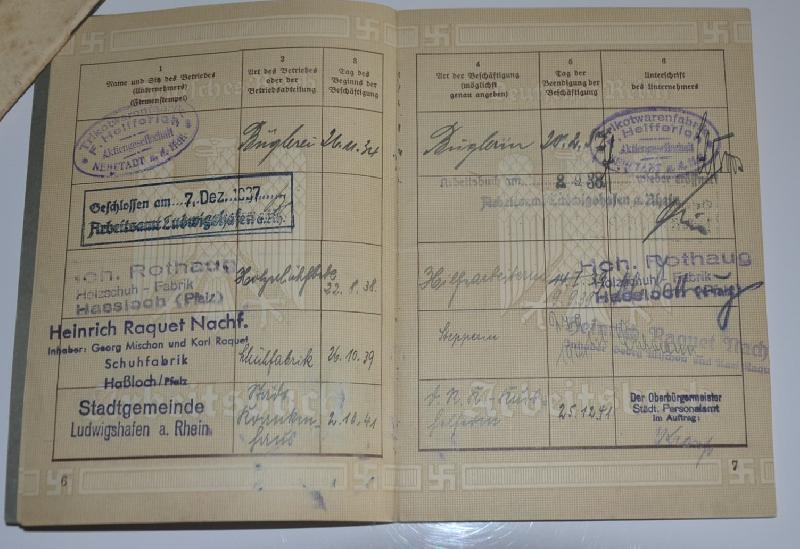 1
Name und Sitz des Betriebes
(Unternehmers)
(Firmenstempel)
2
Art des Betriebes
oder der
Betriebsabteilung
3
Tag des
Beginns der
Beschäftigung
Trikotwarenfabrik
F. Helfferich
Aktiengesellschaft
NEUSTADT a. d. Hdt.
Büglerei
26.11.34
Geschlossen am 7. Dez. 1937
Arbeitsamt Ludwigshafen a. Rh.
Joh. Rothaug
Holzschuh - Fabrik
Hassloch (Pfalz)
22.8.38.
Heinrich Raquet Nachf.
Inhaber: Georg Mischon und Karl Raquet
Schuhfabrik
Haßloch/Pfalz
Schuhfabrik
26.10.39
Stadtgemeinde
Ludwigshafen a. Rhein
Städt.
Krankenhaus
2.10.41
6
4
Art der Beschäftigung
(möglichst
genau angeben)
5
Tag der
Beendigung der
Beschäftigung
6
Unterschrift
des Unternehmers
Büglerin
Trikotwarenfabrik
F. Helfferich
Aktiengesellschaft
NEUSTADT a. d. Hdt.
Arbeitsbuch am
wieder eröffnet
Arbeitsamt Ludwigshafen a. Rhein
Hilfsarbeiterin
Joh. Rothaug
Holzschuh - Fabrik
Hassloch (Pfalz)
Stepperin
Heinrich Raquet Nach
Inhaber Georg Mischon und Karl Raque
25.12.41
Der Oberbürgermeister
Städt. Personalamt
im Auftrag:
7